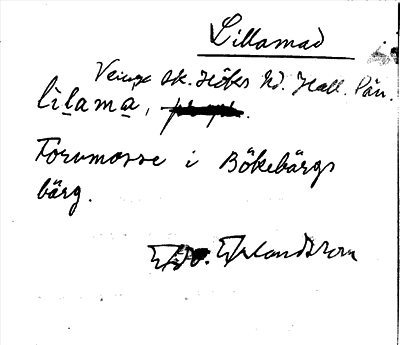 Lillamad
Veinge sk. Höks hd. Hall. län.
li̱lama̱,
Torvmosse i Bökebärgs
bärg.